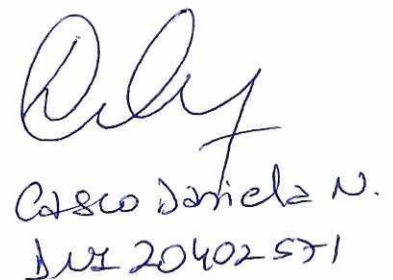 Casco Daniela N.
DNI 20402571